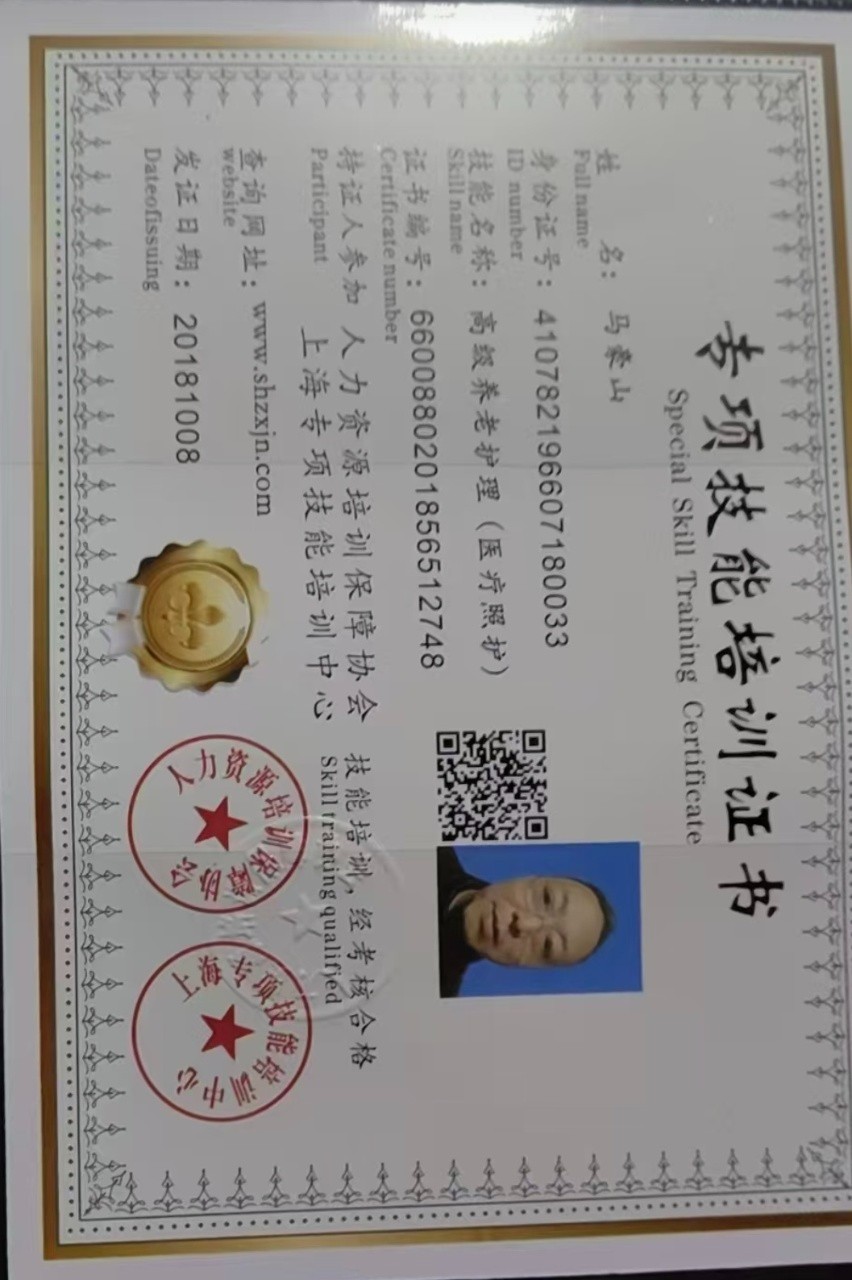 专项技能培训证书
Special Skill Training Certificate
姓 名：马豪山
Full name
身份证号：410782196607180033
ID number
技能名称：高级养老护理（医疗照护）
Skill name
证书编号：6600880201856512748
Certificate number
持证人参加 人力资源培训保障协会 技能培训，经考核合格
上海专项技能培训中心
Participant Skill training qualified
查询网址：www.shzxjn.com
website
发证日期：20181008
Dateofissuing
人力资源培训保障协会
上海专项技能培训中心